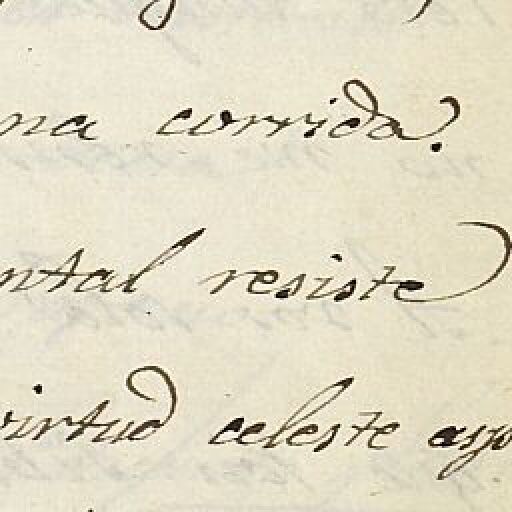 na corrida.
ntal resiste
virtud celeste